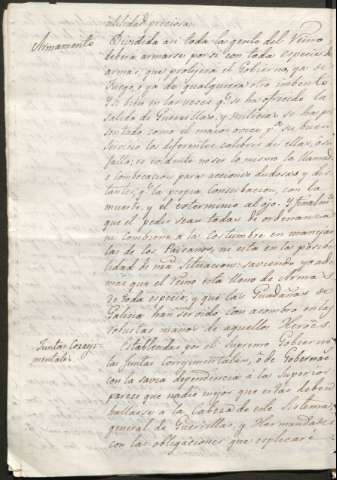 utilidad preciosa.
Armamento Dividida asi toda la gente del Reino
debera armarse por si con toda especie de
armas, que protejera el Gobierno, ya de
fuego, ya de qualquiera otro
Si bien en las veces qe se ha ofrecido la
salida de Guerrillas, y se ha
como el maior qe su buen
servicio los diferentes calibres de ellas, o su
falla; es no ser lo mismo la llamada
e combocacion para acciones dudosas y dis-
tantes, qe la propia conserbacion, con la
muerte, y el esterminio al ojo. Y finalmte
que el pedir sean todas de ordenanza
ni combiene a la costumbre en manejar-
las de los Paisanos, ni esta en la posibi-
lidad de nra situacion: saviendo ya ade-
mas que el Reino esta lleno de Armas
de toda especie, y que las Guadañas de
Galicia han servido, con asombro en las
robustas manos de aquellos Heroes.
Juntas Corregi-
mentales Establecidas por el Supremo Gobierno
las Juntas corregimentales, ó de Gobernon
con la savia dependencia á las Superiores
parece que nadie mejor que estas deben
hallarse á la Cabeza de este Sistema
general de Guerrillas, y Hermandades
con las obligaciones que esplicaré